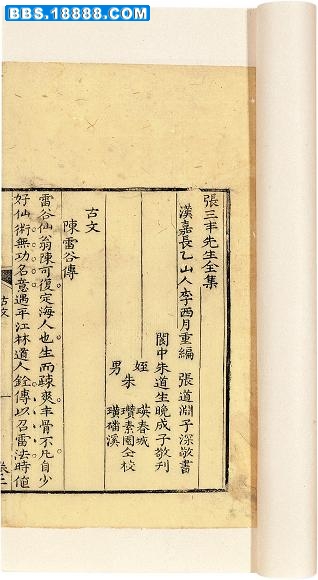 BBS.18888.COM
張三丰先生全集
漢嘉長乙山人李西月重編 張道淵子深敬書
閬中朱道生晚成子敬刊
姪 瑛春城
朱 瓚素園仝校
男 璜磻溪
古文
陳雷谷傳
雷谷仙翁陳可復定海人也生而疎爽丰骨不凡自少
好仙術無功名意遇平江林道人銓傳以召雷法時値
古文
卷二